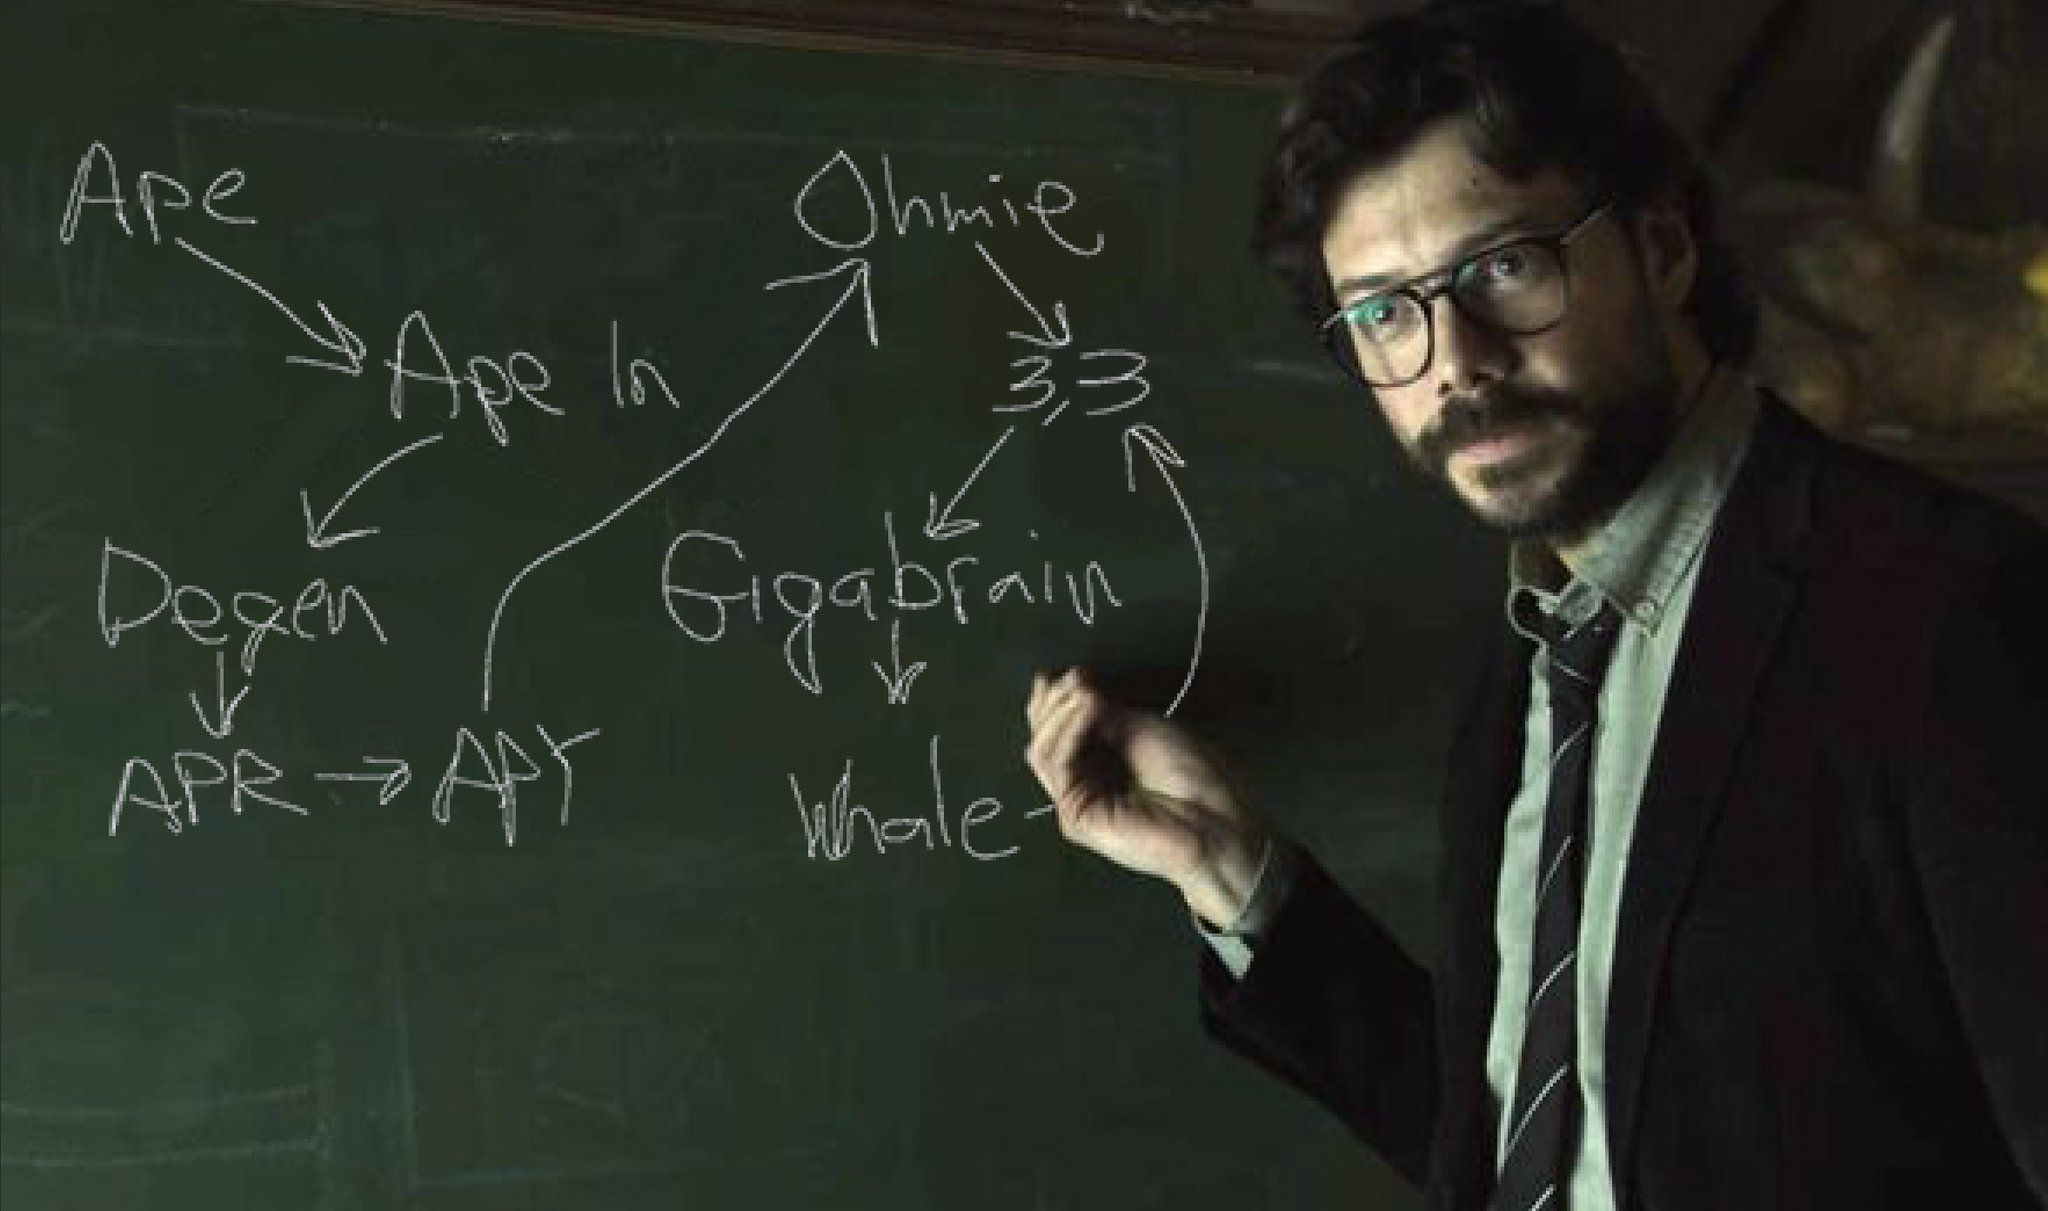 Ape
Ape In
Degen
APR
APY
Ohmie
3,3
Gigabrain
Whale